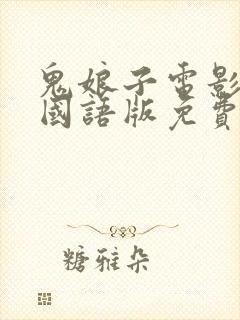 鬼娘子電影
國語版免費
糖雅朵